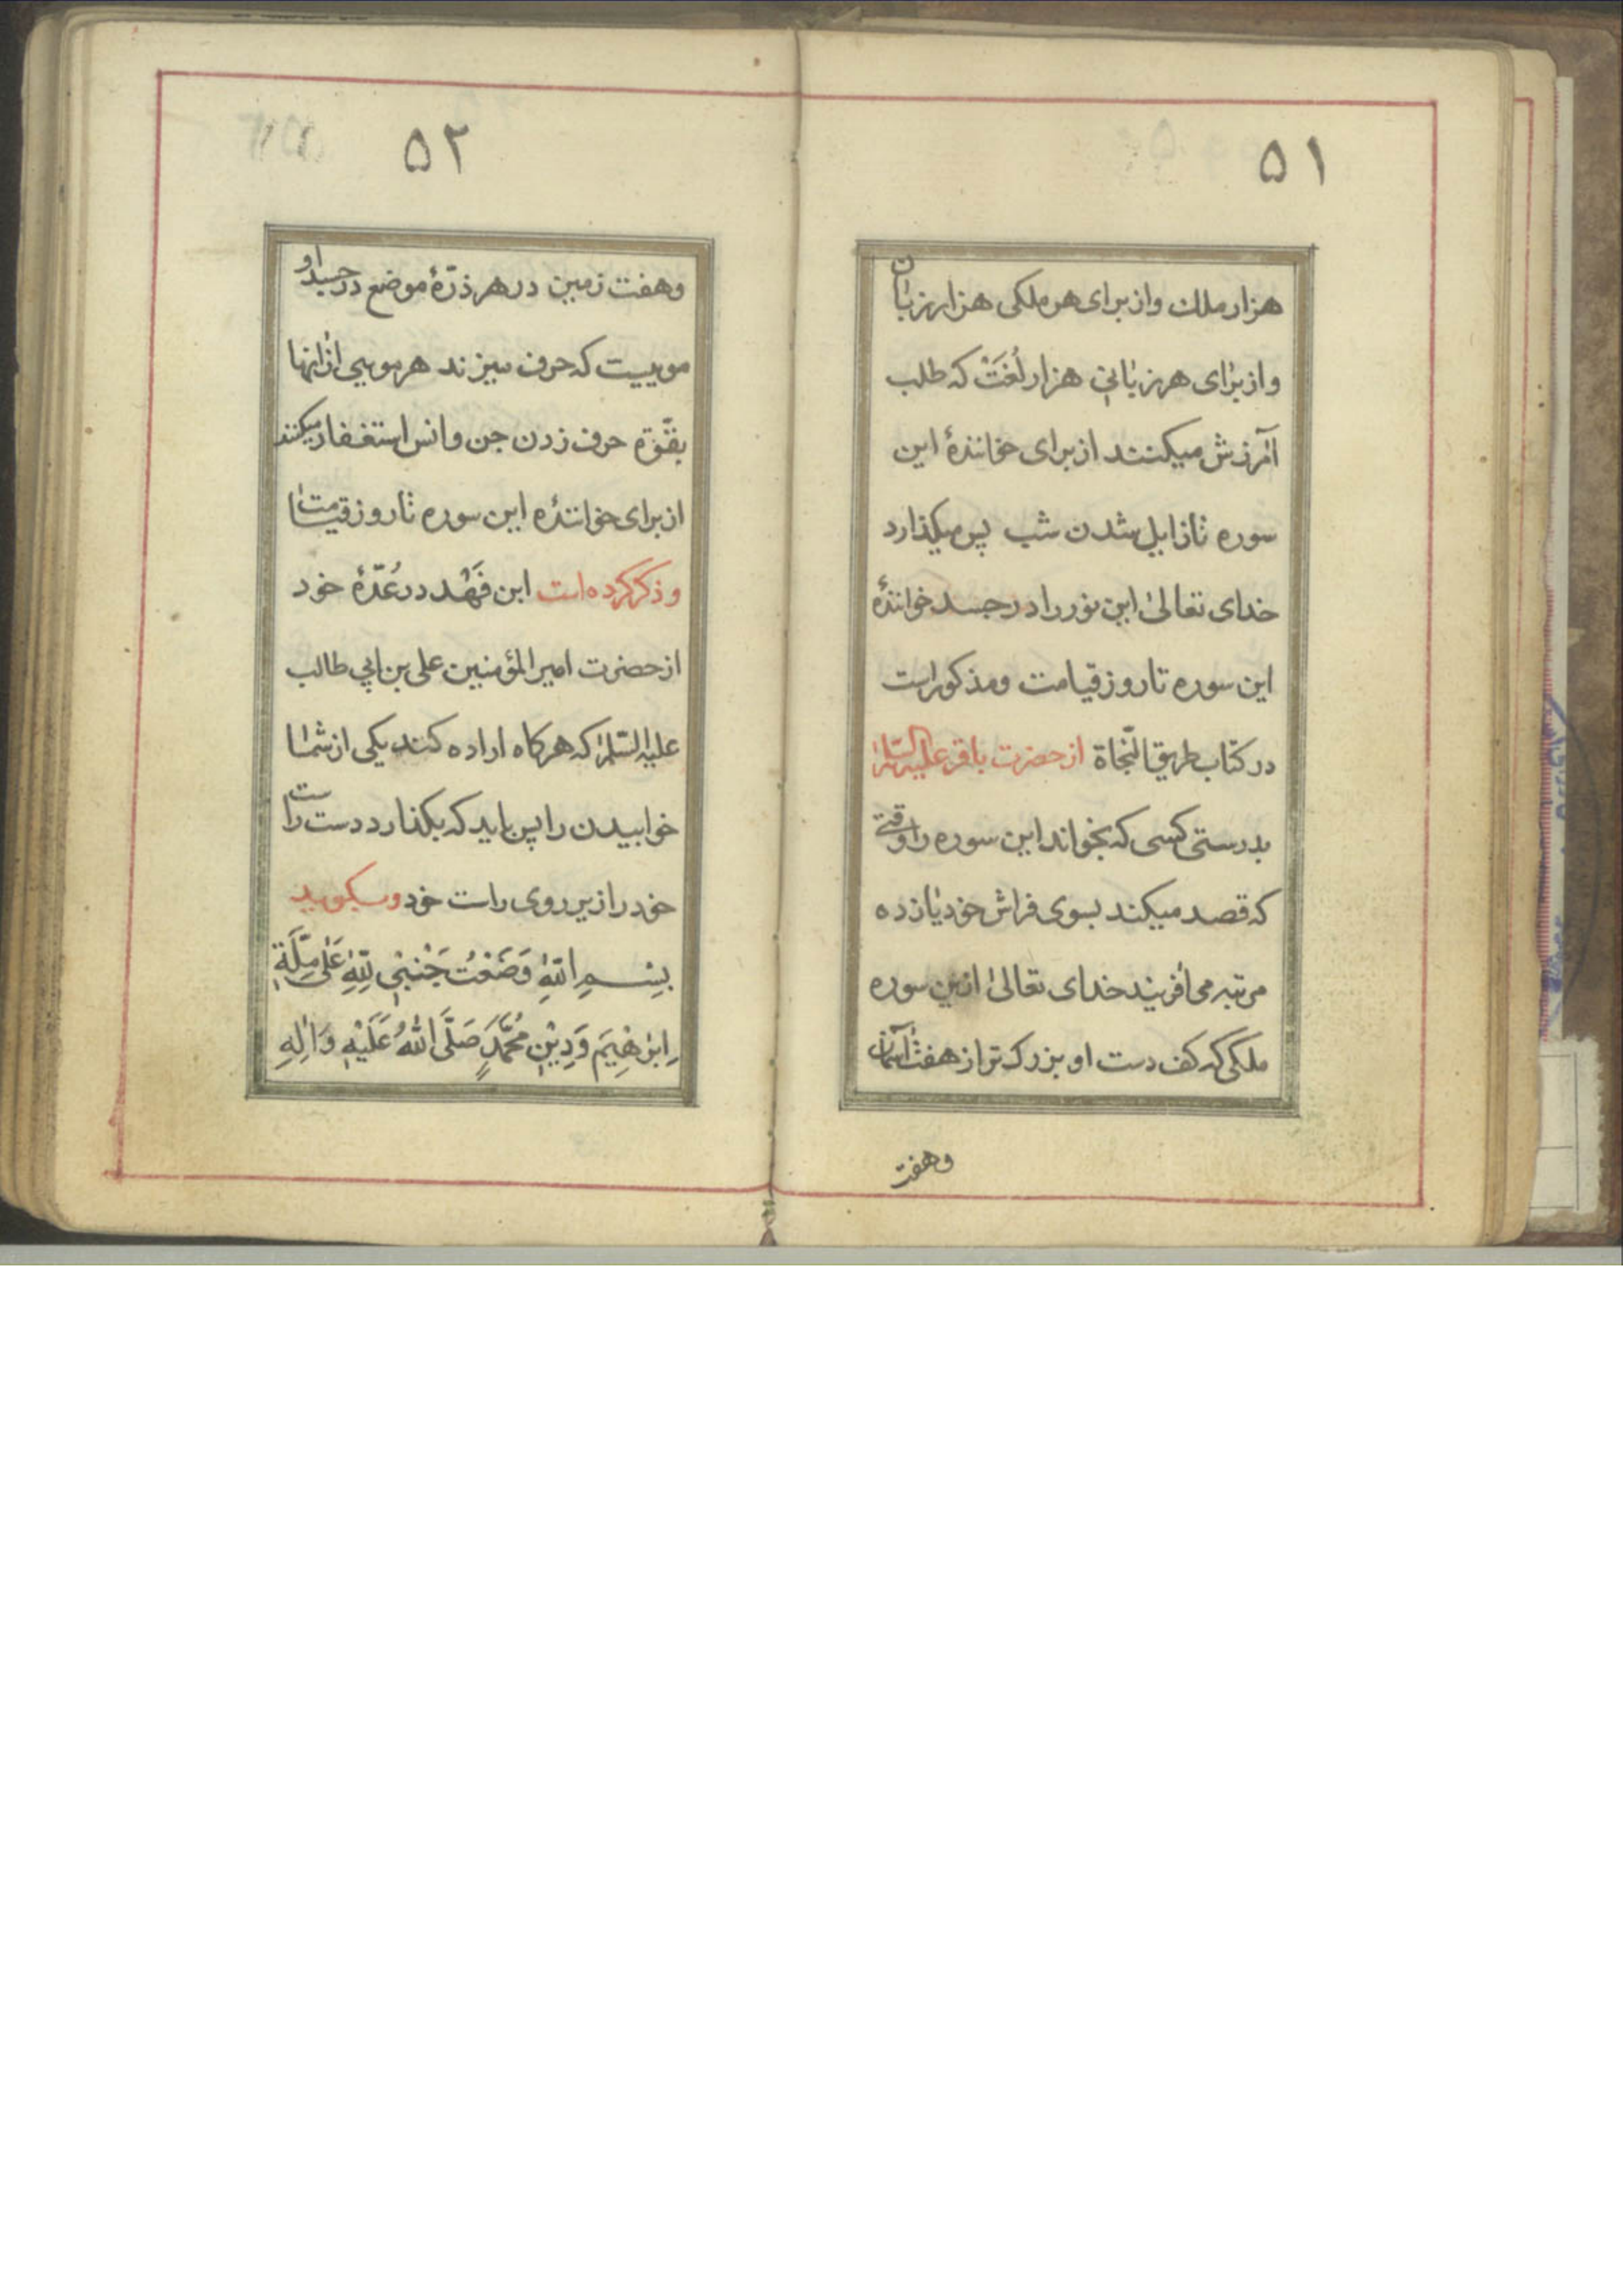 ۵۱
هزار ملک و از برای هر ملکی هزار زبان
و از برای هر زبانی هزار لُغَتْ که طلب
آمرزش میکنند از برای خوانندهٔ این
سوره تا زایل شدن شب پس میکذارد
خدای تعالیٰ این نور را در جسد خوانندهٔ
این سوره تا روز قیامت و مذکور است
در کتاب طریق النّجاة از حضرت باقر علیه السّلام
بدرستی کسی که بخواند این سوره را وقتی
که قصد میکند بسوی فراش خود یازده
مرتبه می آفریند خدای تعالیٰ ازین سوره
ملکی که کف دست او بزرک تر از هفت آسمان
و هفت
۵۲
و هفت زمین در هر ذرّهٔ موضع در جسد او
موییست که حرف میزند هر مویی از انها
بقوّة حرف زدن جن و انس استغفار میکنند
از برای خوانندهٔ این سوره تا روز قیامت
و ذکر کرده است ابن فَهْد در عُدّهٔ خود
از حضرت امیر المؤمنین علی بن ابی طالب
علیه السّلام که هرکاه اراده کند یکی از شما
خوابیدن را پس باید که بکذارد دست راست
خود را زیر روی راست خود و بکوید
بِسْمِ اللّٰهِ وَضَعْتُ جَنْبِی لِلّٰهِ عَلٰی مِلَّةِ
اِبْرٰهِیمَ وَ دِیْنِ مُحَمَّدٍ صَلَّی اللّٰهُ عَلَیْهِ وَ اٰلِهِ